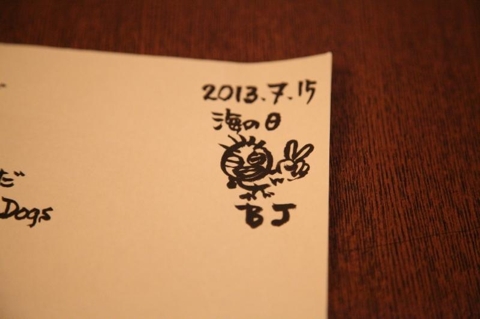 2013.7.15
海の日
だ
Dogs
BJ